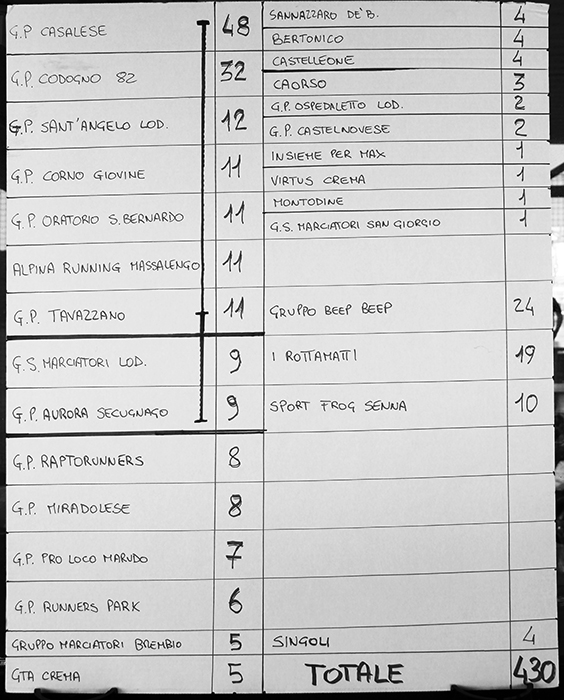 G.P. CASALESE 48
G.P. CODOGNO 82 32
G.P. SANT'ANGELO LOD. 12
G.P. CORNO GIOVINE 11
G.P. ORATORIO S.BERNARDO 11
ALPINA RUNNING MASSALENGO 11
G.P. TAVAZZANO 11
G.S. MARCIATORI LOD. 9
G.P. AURORA SECUGNAGO 9
G.P. RAPTORUNNERS 8
G.P. MIRADOLESE 8
G.P. PRO LOCO MARUDO 7
G.P. RUNNERS PARK 6
GRUPPO MARCIATORI BREMBIO 5
GTA CREMA 5
SANNAZZARO DE'B. 4
BERTONICO 4
CASTELLEONE 4
CAORSO 3
G.P. OSPEDALETTO LOD. 2
G.P. CASTELNOVESE 2
INSIEME PER MAX 1
VIRTUS CREMA 1
MONTODINE 1
G.S. MARCIATORI SAN GIORGIO 1
GRUPPO BEEP BEEP 24
I ROTTAMATTI 19
SPORT FROG SENNA 10
SINGOLI 4
TOTALE 430